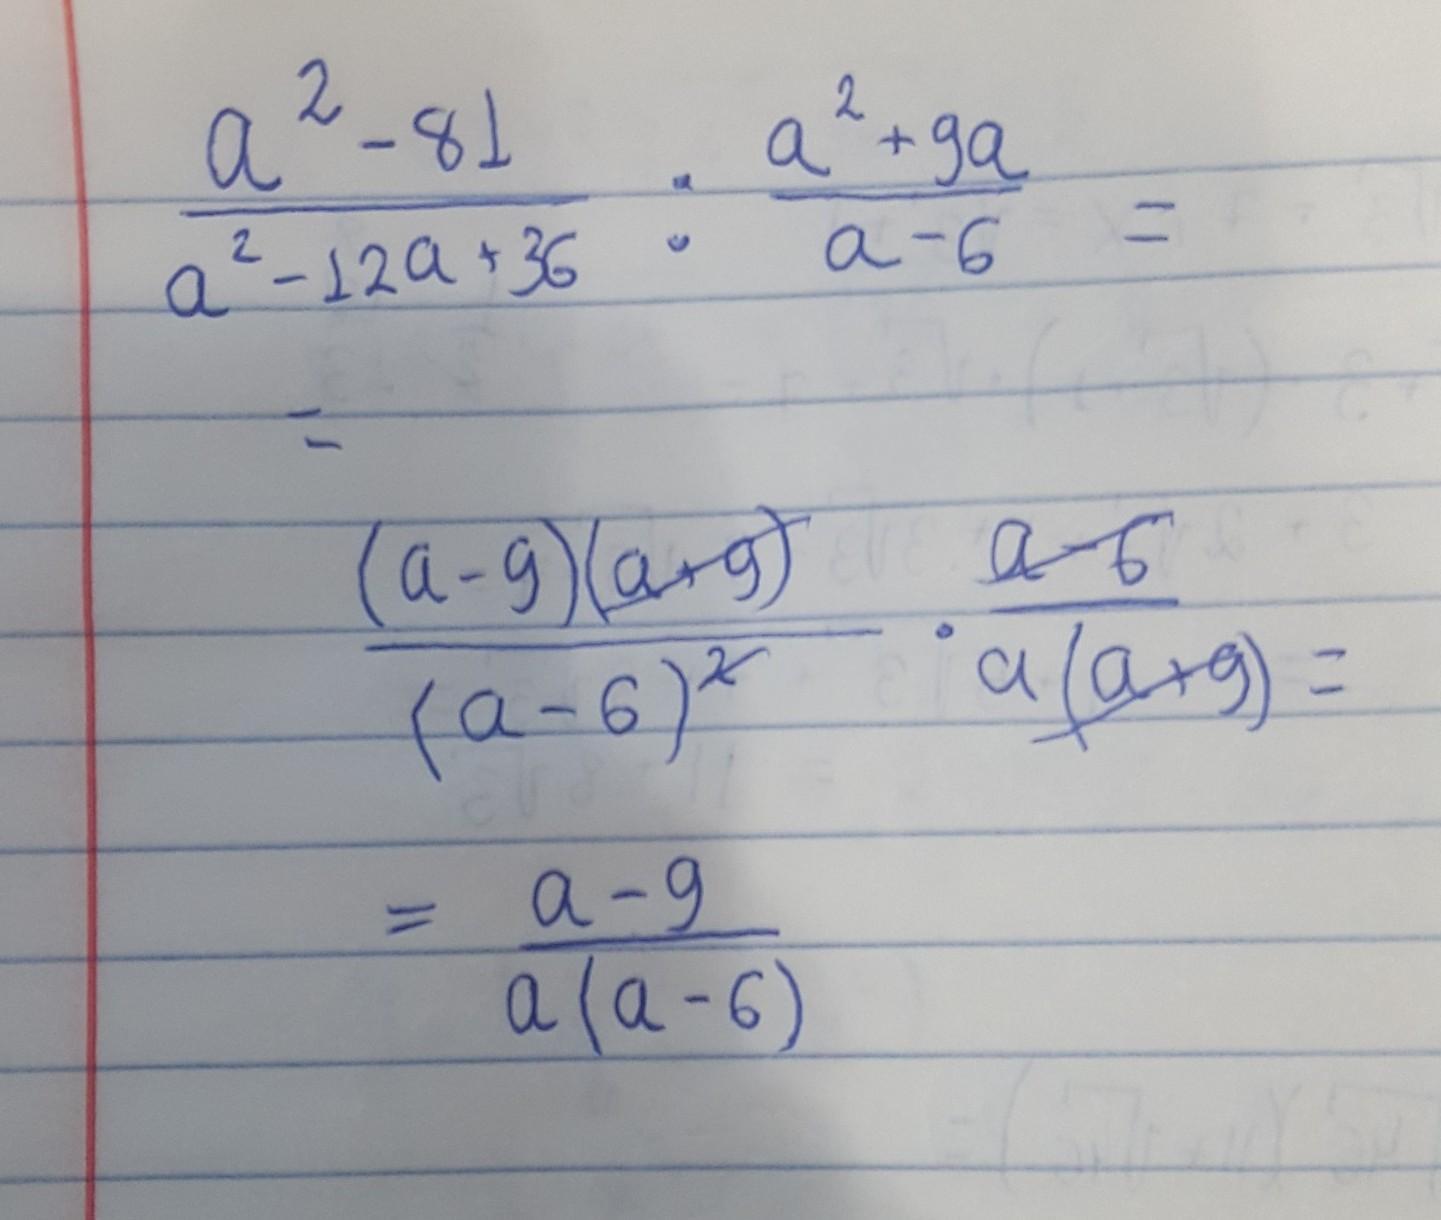 a² - 81 / a² - 12a + 36 : a² + 9a / a - 6 =
=
(a - 9)(a + 9) / (a - 6)² · a - 6 / a(a + 9) =
= a - 9 / a(a - 6)